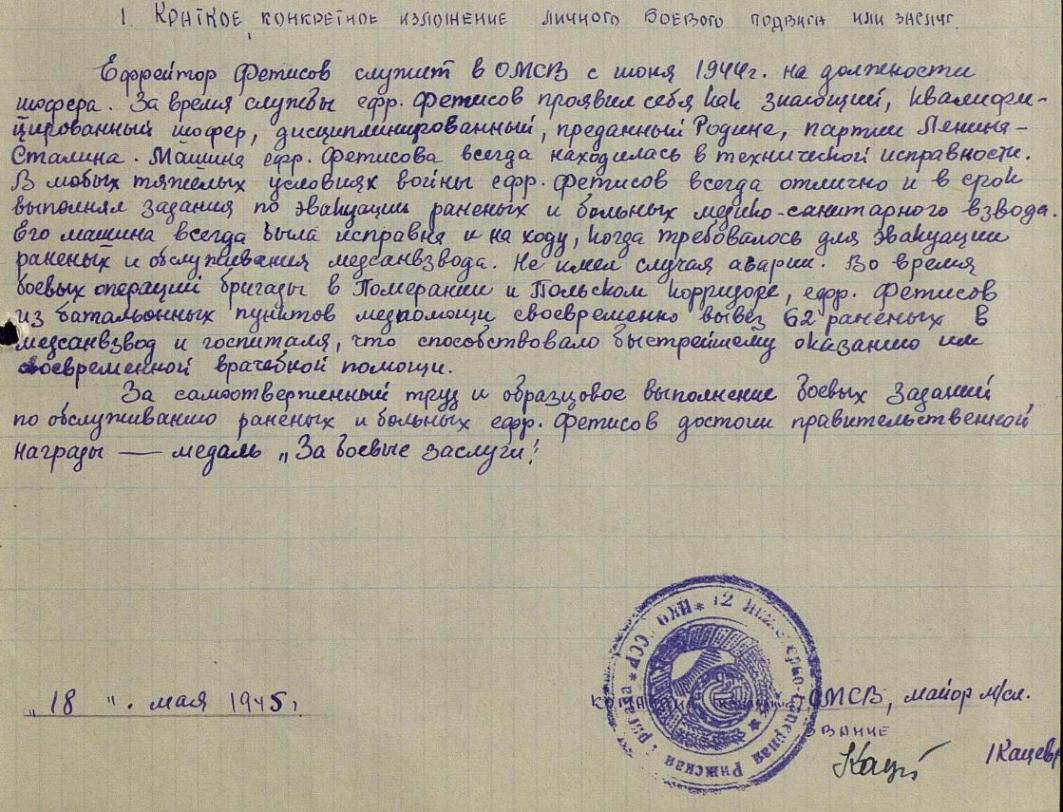 1. Краткое конкретное изложение личного боевого подвига или заслуг.
Ефрейтор Фетисов служит в ОМСВ с июня 1944 г. на должности
шофера. За время службы ефр. Фетисов проявил себя как знающий, квалифи-
цированный шофер, дисциплинированный, преданный Родине, партии Ленина-
Сталина. Машина ефр. Фетисова всегда находилась в технической исправности.
В любых тяжёлых условиях войны ефр. Фетисов всегда отлично и в срок
выполнял задания по эвакуации раненых и больных медико-санитарного взвода.
Его машина всегда была исправна и на ходу, когда требовалось для эвакуации
раненых и обслуживания медсанвзвода. Не имел случая аварии. Во время
боевых операций бригады в Померании и Польском корридоре, ефр. Фетисов
из батальонных пунктов медпомощи своевременно вывез 62 раненых в
медсанвзвод и госпиталя, что способствовало быстрейшему оказанию им
своевременной врачебной помощи.
За самоотверженный труд и образцовое выполнение боевых заданий
по обслуживанию раненых и больных ефр. Фетисов достоин правительственной
награды — медаль „За боевые заслуги".
„18 ". мая 1945 г.
ОМСВ, майор м/сл.
звание
/Кацев/
НКО СССР * 12 Инженерно-саперная Рижская бригада *